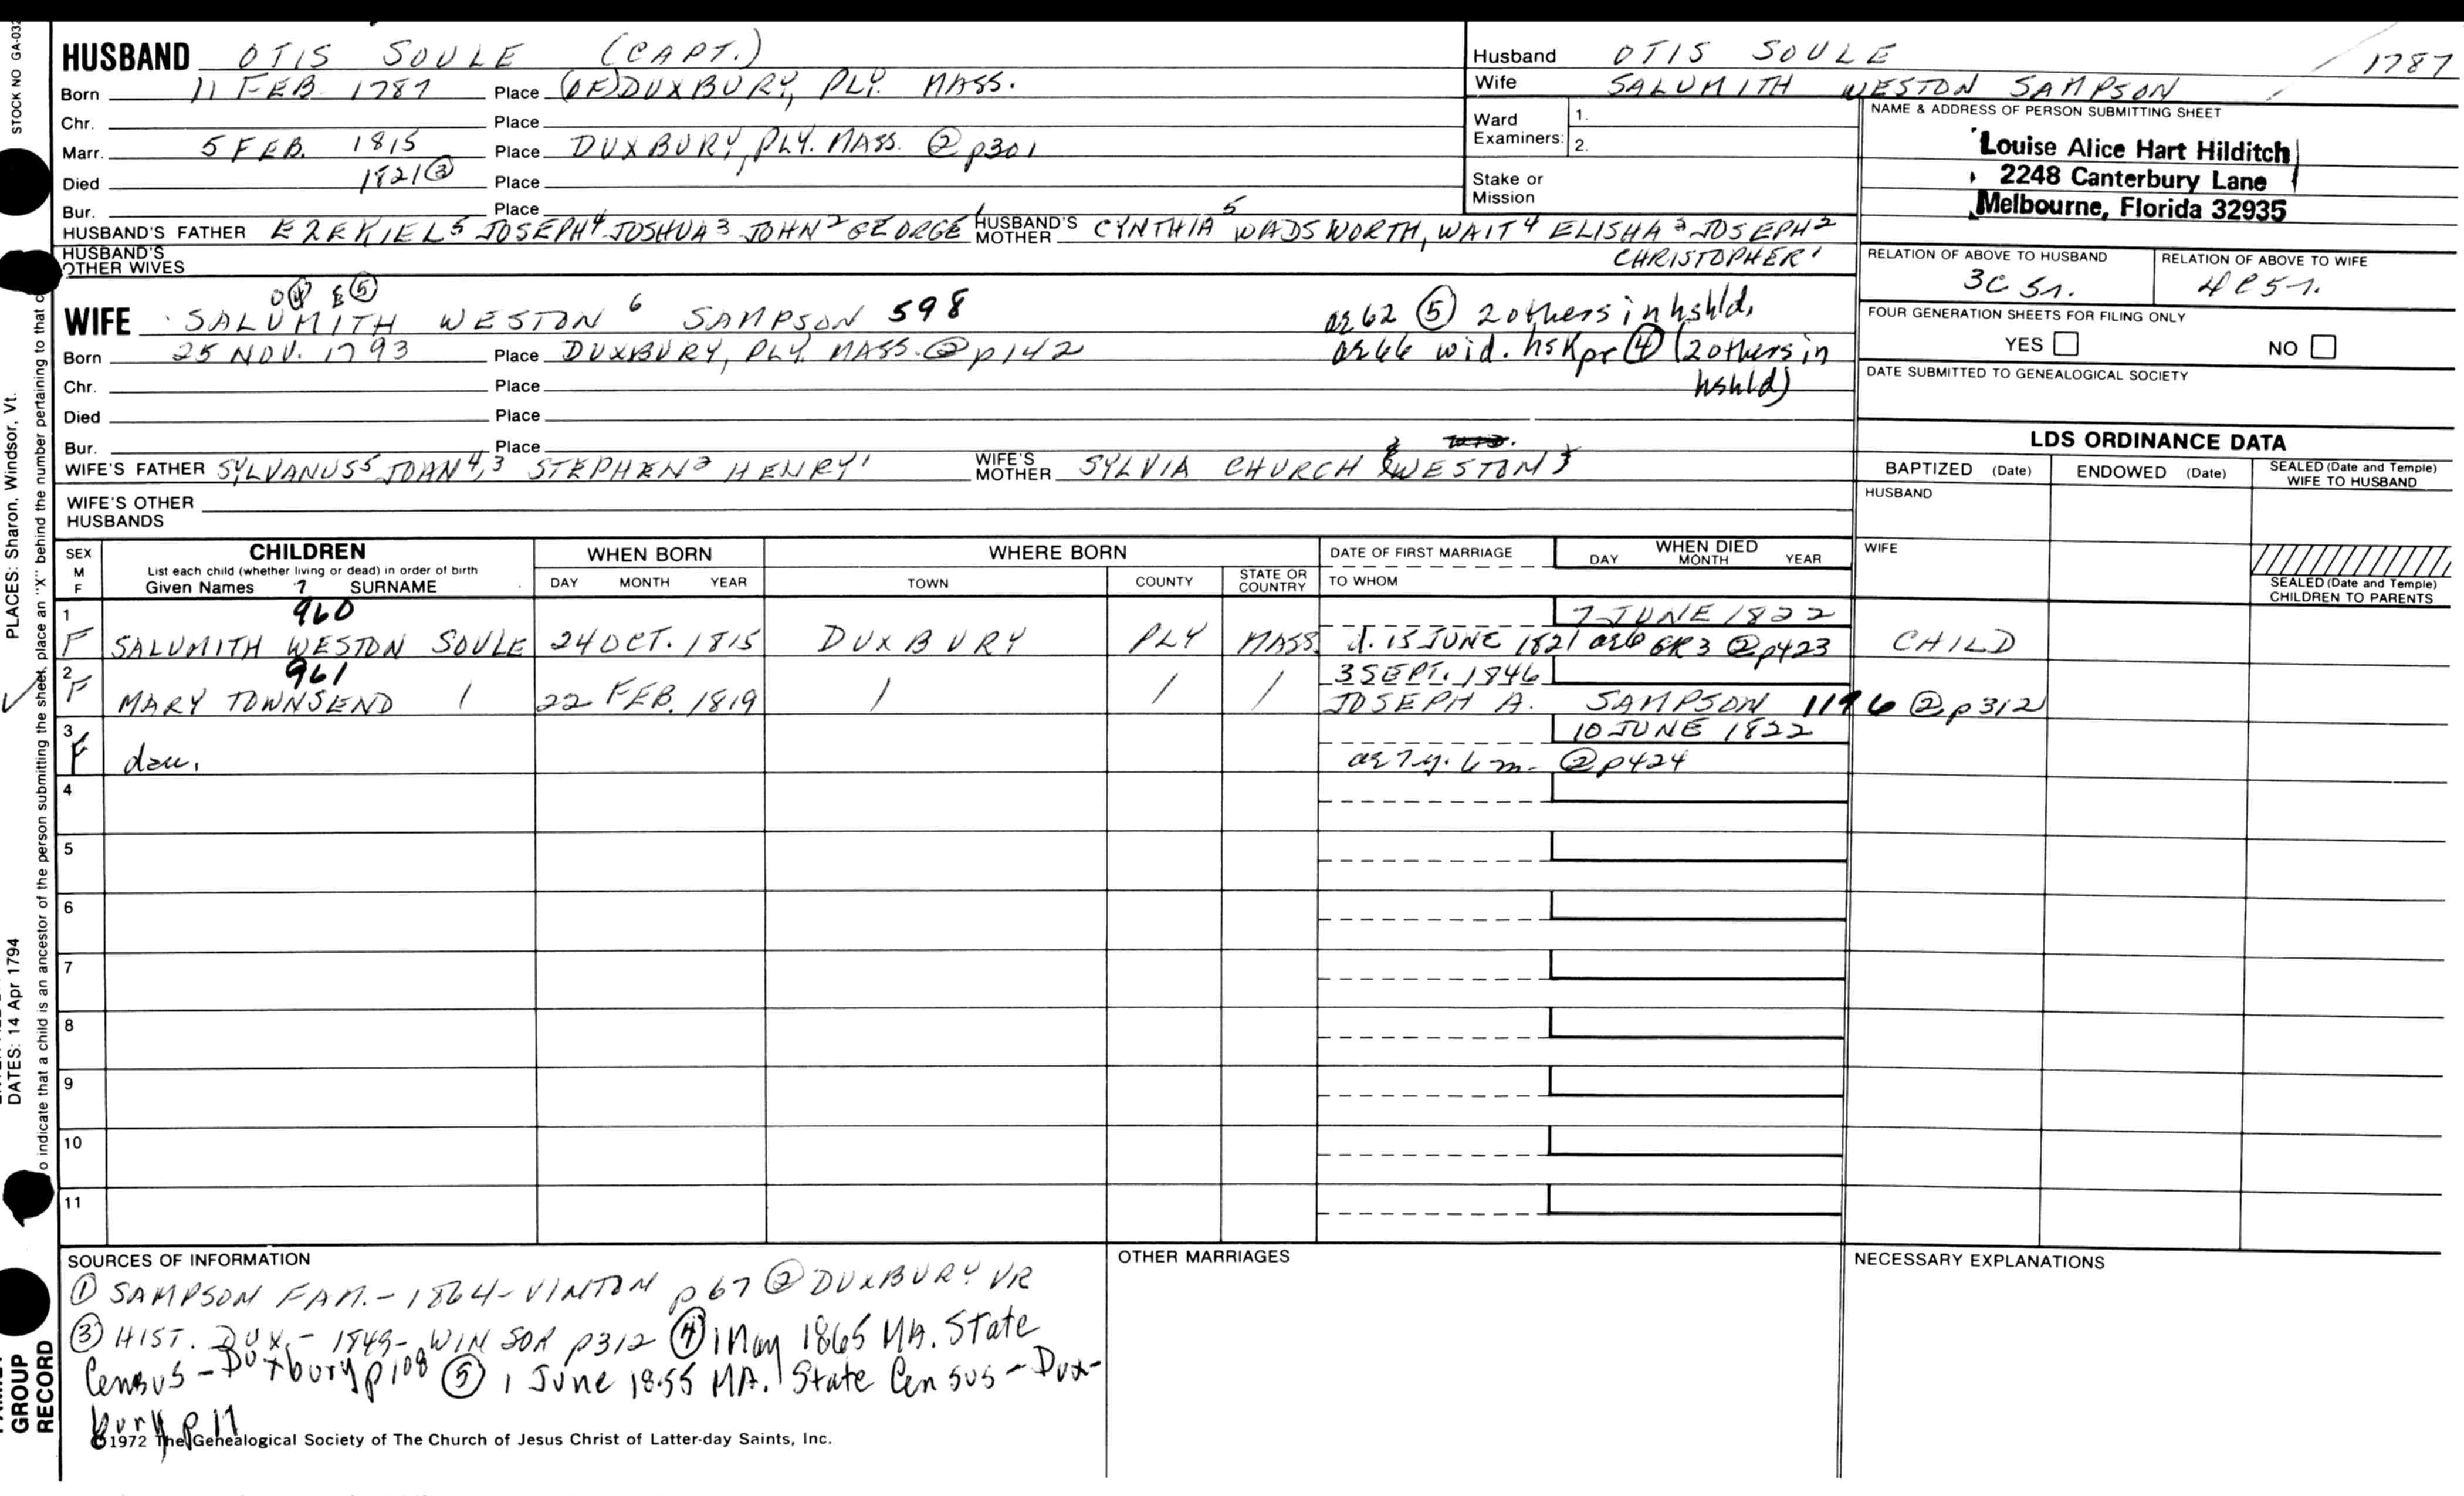 STOCK NO GA-032
HUSBAND OTIS SOULE (CAPT.)
Born 11 FEB. 1787 Place (OF) DUXBURY, PLY. MASS.
Chr. Place
Marr. 5 FEB. 1815 Place DUXBURY, PLY. MASS. ② p301
Died 1821 ③ Place
Bur. Place
HUSBAND'S FATHER EZEKIEL⁵ JOSEPH⁴ JOSHUA³ JOHN² GEORGE¹ HUSBAND'S MOTHER CYNTHIA⁵ WADSWORTH, WAIT⁴ ELISHA³ JOSEPH²
CHRISTOPHER¹
HUSBAND'S OTHER WIVES
Husband OTIS SOULE 1787
Wife SALUMITH WESTON SAMPSON
Ward Examiners: 1.
2.
Stake or Mission
NAME & ADDRESS OF PERSON SUBMITTING SHEET
Louise Alice Hart Hilditch
2248 Canterbury Lane
Melbourne, Florida 32935
RELATION OF ABOVE TO HUSBAND RELATION OF ABOVE TO WIFE
3C 5r. 4C5r.
FOUR GENERATION SHEETS FOR FILING ONLY
YES NO
DATE SUBMITTED TO GENEALOGICAL SOCIETY
④ & ⑤
WIFE SALUMITH WESTON⁶ SAMPSON 598
ae 62 ⑤ 2 others in hshld.
Born 25 NOV. 1793 Place DUXBURY, PLY. MASS. ② p142
ae 66 wid. hskpr ④ (2 others in
hshld)
Chr. Place
Died Place
Bur. Place
WIFE'S FATHER SYLVANUS⁵ JOHN⁴,³ STEPHEN² HENRY¹ WIFE'S MOTHER SYLVIA CHURCH WESTON
WIFE'S OTHER HUSBANDS
LDS ORDINANCE DATA
BAPTIZED (Date) ENDOWED (Date) SEALED (Date and Temple) WIFE TO HUSBAND
HUSBAND
WIFE
SEALED (Date and Temple) CHILDREN TO PARENTS
SEX M F CHILDREN List each child (whether living or dead) in order of birth Given Names 7 SURNAME
WHEN BORN DAY MONTH YEAR
WHERE BORN TOWN COUNTY STATE OR COUNTRY
DATE OF FIRST MARRIAGE TO WHOM
WHEN DIED DAY MONTH YEAR
1 960 7 JUNE 1822
F SALUMITH WESTON SOULE 24 OCT. 1815 DUXBURY PLY MASS. d. 15 JUNE 1821 ae 6 GR3 ② p423 CHILD
2 961 3 SEPT. 1846
F MARY TOWNSEND / 22 FEB. 1819 / / / JOSEPH A. SAMPSON 1196 ② p312
3 10 JUNE 1822
F dau. ae 7 y. 6 m. ② p424
4
5
6
7
8
9
10
11
SOURCES OF INFORMATION
① SAMPSON FAM. - 1864 - VINTON p67 ② DUXBURY VR
③ HIST. DUX. - 1849 - WINSOR p312 ④ 1 May 1865 MA. State
Census - Duxbury p108 ⑤ 1 June 1855 MA. State Census - Dux-
bury p 17
OTHER MARRIAGES
NECESSARY EXPLANATIONS
©1972 The Genealogical Society of The Church of Jesus Christ of Latter-day Saints, Inc.
PLACES: Sharon, Windsor, Vt.
DATES: 14 Apr 1794
o indicate that a child is an ancestor of the person submitting the sheet, place an "X" behind the number pertaining to that c
GROUP
RECORD